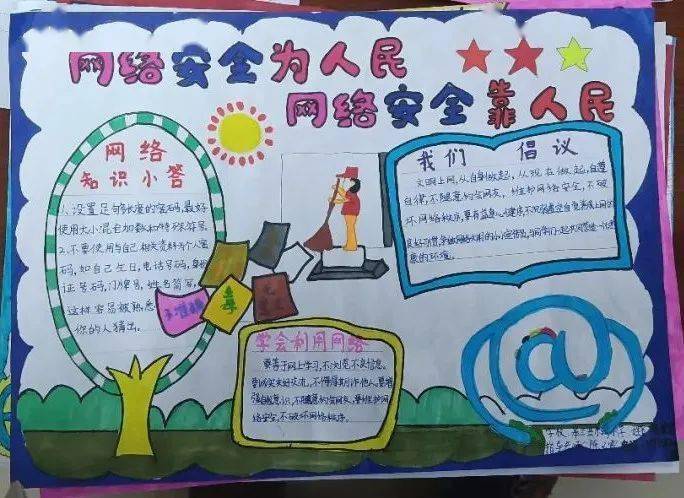 网络安全为人民
网络安全靠人民
网络
知识小答
1、设置足句多长度的密码,最好
使用大小混合加数和特殊符号
2、不要使用与自己相关资料作个人密
码,如自己生日,电话号码,身份
证号码,门牌号,姓名简写,
这样容易被熟悉
你的人猜出。
我们 倡议
文明上网,从自身做起,从现在做起,自尊
自律,不随意约会网友,维护网络安全,不破
坏网络秩序,要有益身心健康,不沉溺虚
学会利用网络
要善于网上学习,不浏览不良信息。
要诚实友好交流,不侮辱欺诈他人,要增
强自护意识,不随意约会网友,要维护网
络安全,不破坏网络秩序。
@